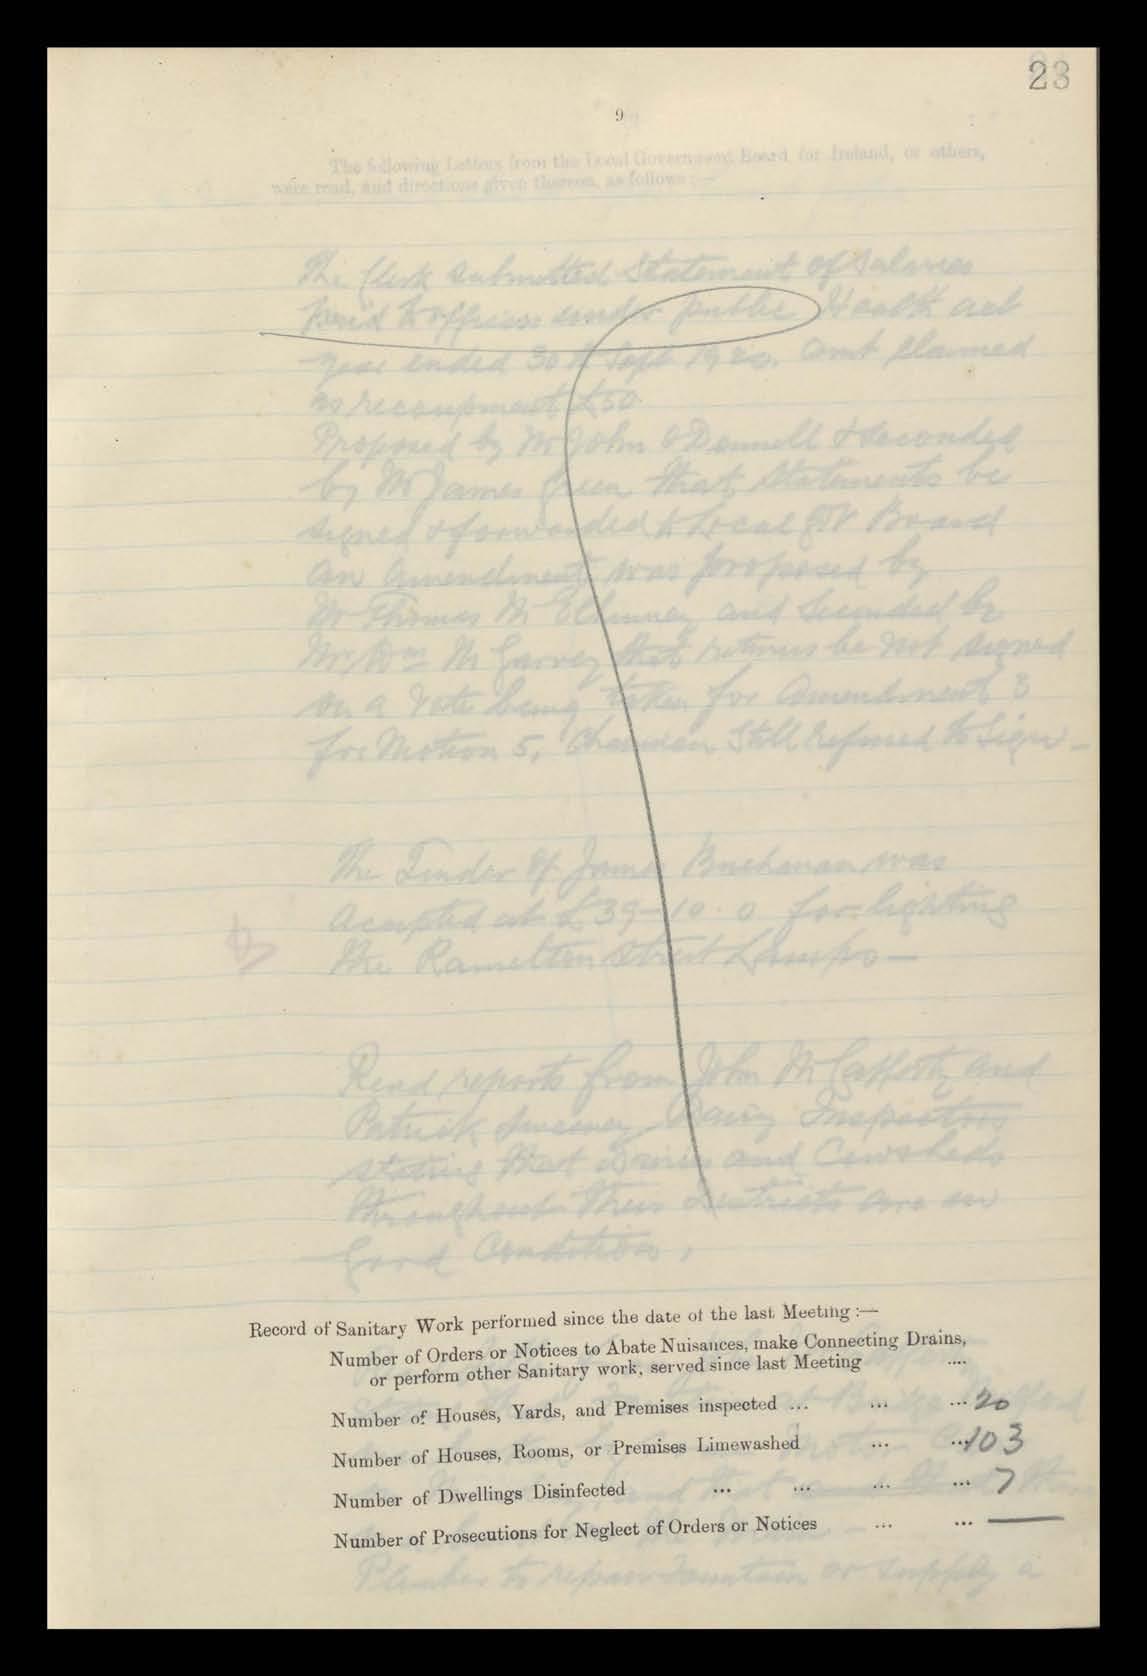 23
9
The following Letters from the Local Government Board for Ireland, or others,
were read, and directions given thereon, as follows :—
The Clerk submitted Statement of Salaries
paid to officers under public Health act
year ended 30th Sept 1920. Amt claimed
as recoupment £50
Proposed by Mr John O'Donnell & seconded
by Mr James Green that Statements be
signed & forwarded to Local Gvt Board
an amendment was proposed by
Mr Thomas McElhinney and seconded by
Mr Wm McGarvey that returns be not signed
on a vote being taken for amendment 3
for Motion 5. Chairman Still refused to Sign —
The Tender of James Buchanan was
Accepted at £39-10.0 for lighting
the Ramelton Street Lamps —
Read reports from John McCafferty and
Patrick Sweeney Dairy Inspectors
stating that Dairies and Cowsheds
throughout their Districts are in
Good Condition.
Record of Sanitary Work performed since the date of the last Meeting :—
Number of Orders or Notices to Abate Nuisances, make Connecting Drains,
or perform other Sanitary work, served since last Meeting ....
Number of Houses, Yards, and Premises inspected ... ... ... 20
Number of Houses, Rooms, or Premises Limewashed ... ... 103
Number of Dwellings Disinfected ... ... ... ... 7
Number of Prosecutions for Neglect of Orders or Notices ... ... —
Plumber to repair fountain or supply a